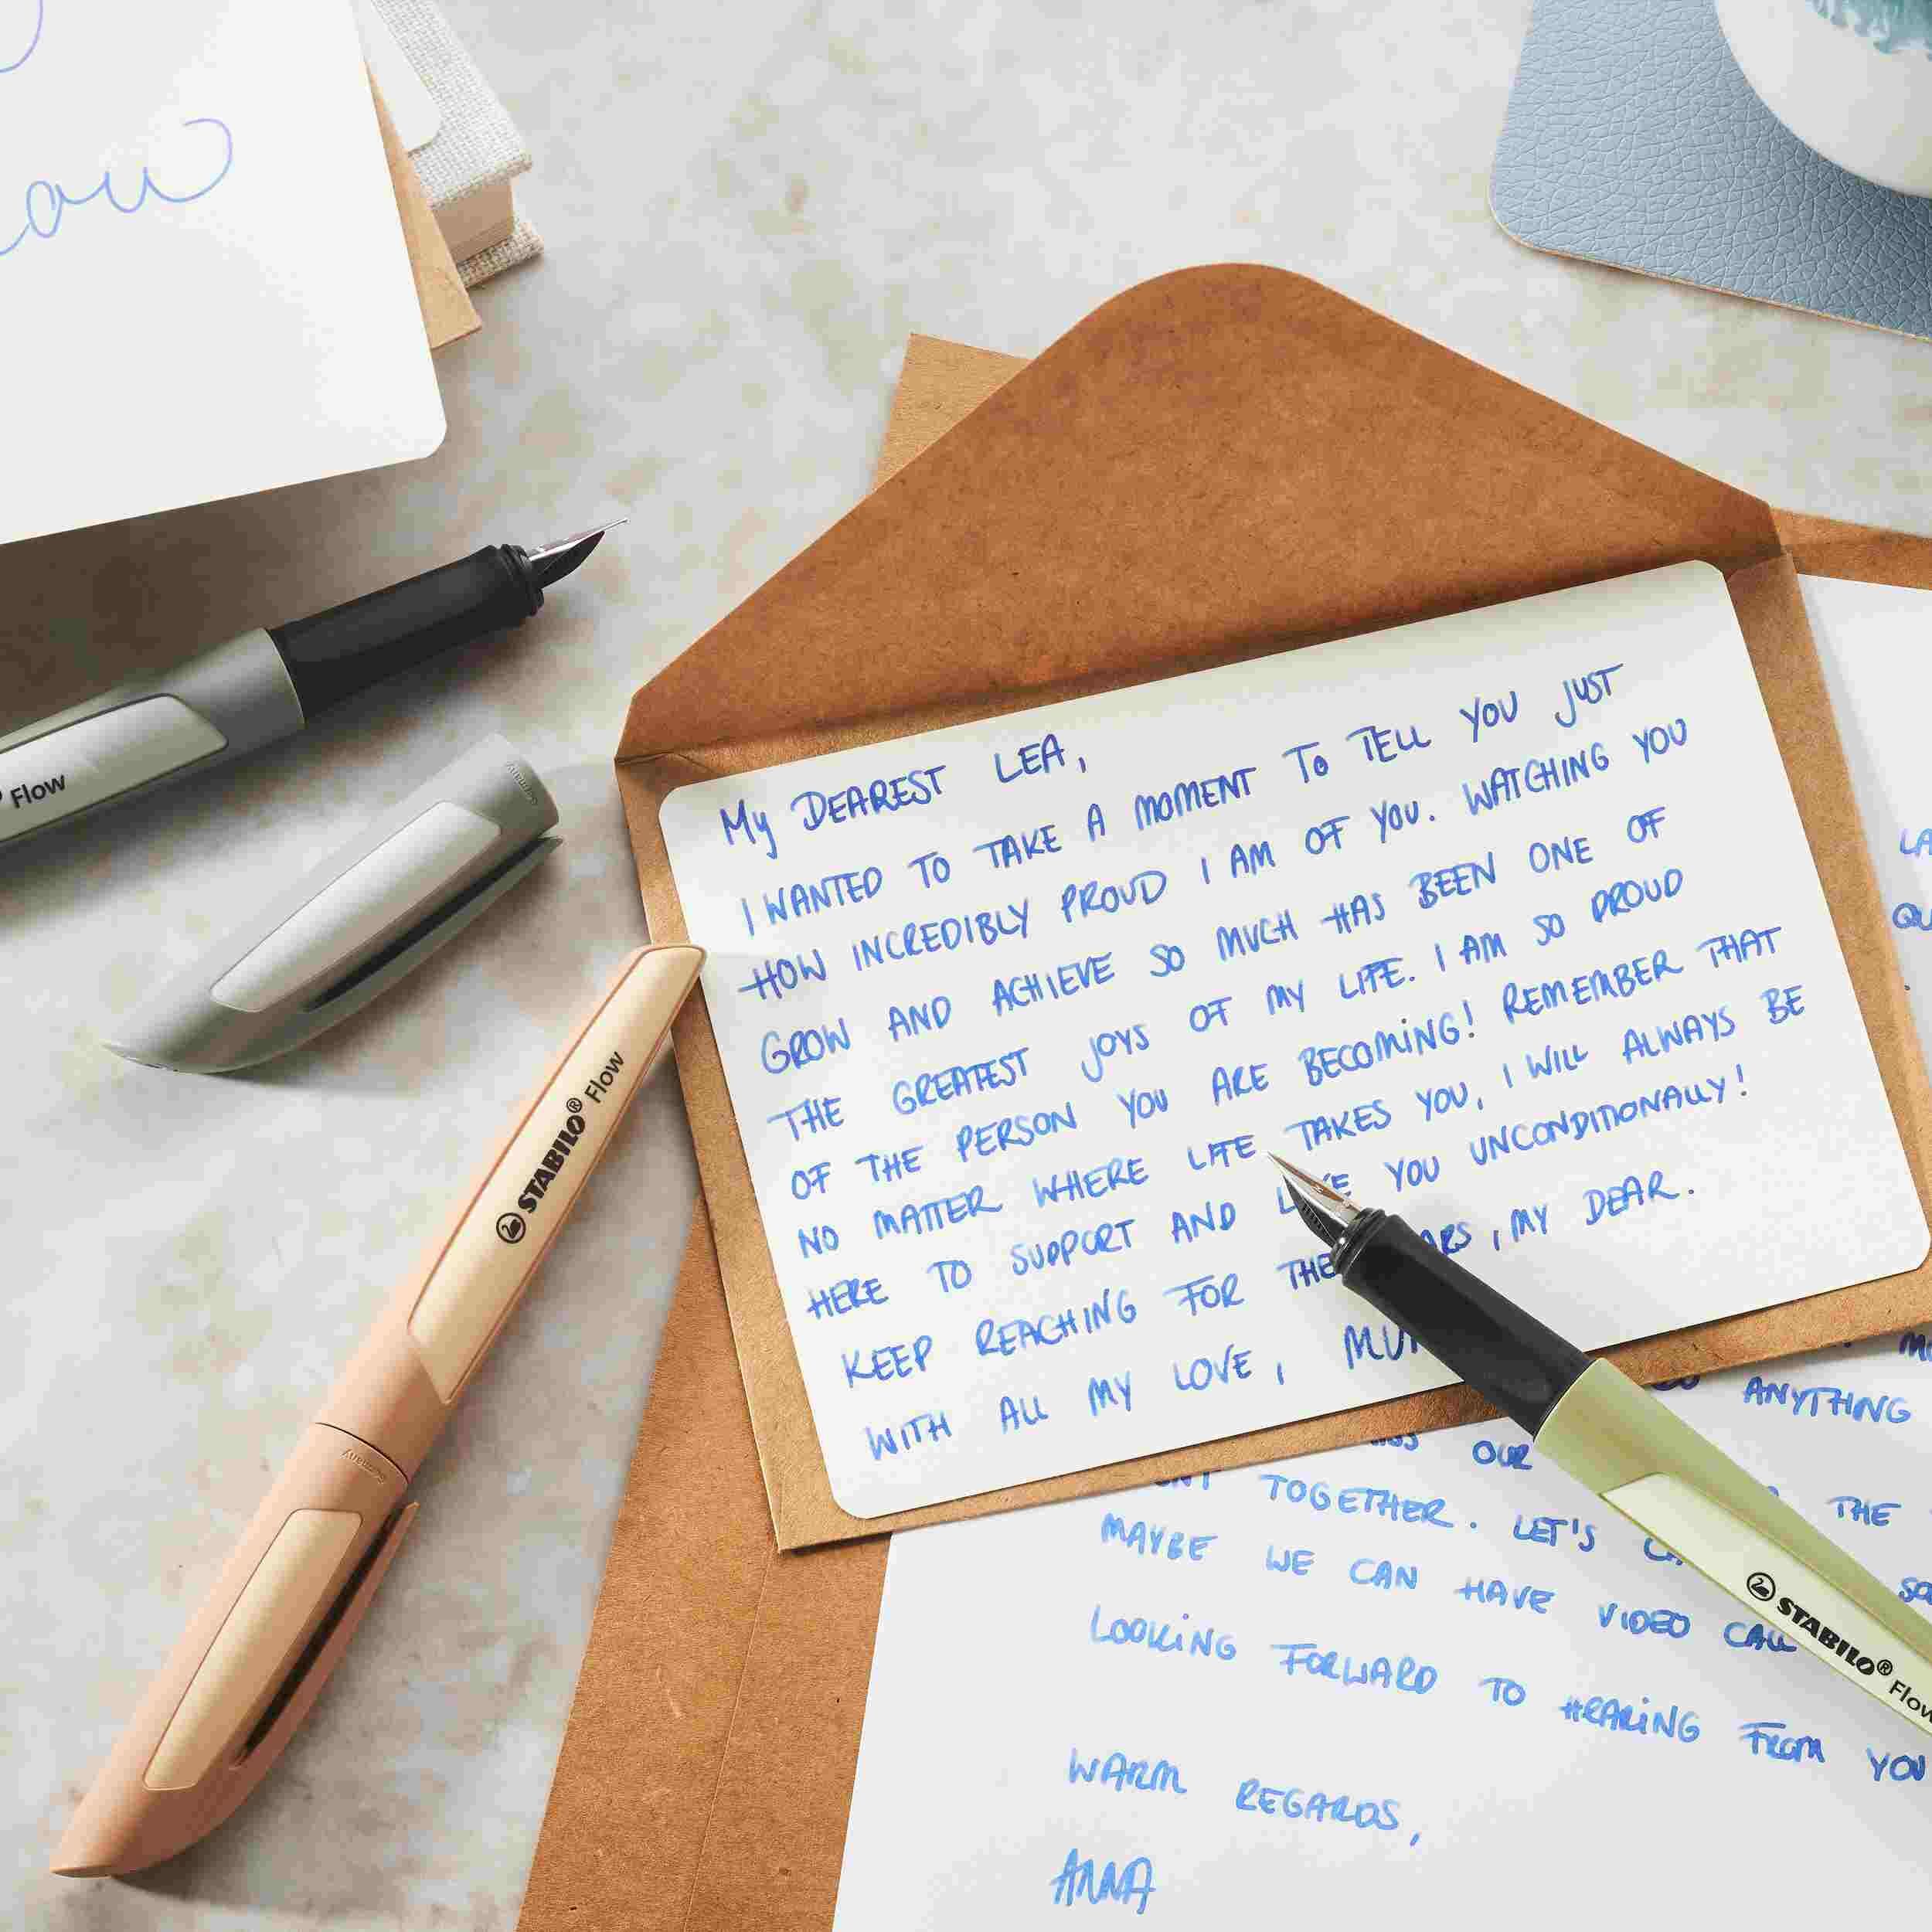 Flow
Germany
STABILO® Flow
Germany
MY DEAREST LEA,
I WANTED TO TAKE A MOMENT TO TELL YOU JUST
HOW INCREDIBLY PROUD I AM OF YOU. WATCHING YOU
GROW AND ACHIEVE SO MUCH HAS BEEN ONE OF
THE GREATEST JOYS OF MY LIFE. I AM SO PROUD
OF THE PERSON YOU ARE BECOMING! REMEMBER THAT
NO MATTER WHERE LIFE TAKES YOU, I WILL ALWAYS BE
HERE TO SUPPORT AND YOU UNCONDITIONALLY!
KEEP REACHING FOR , MY DEAR.
WITH ALL MY LOVE,
ANYTHING
OUR THE
TOGETHER. LET'S
MAYBE WE CAN HAVE VIDEO CALL
LOOKING FORWARD TO HEARING FROM YOU
WARM REGARDS,
ANNA
STABILO® Flow